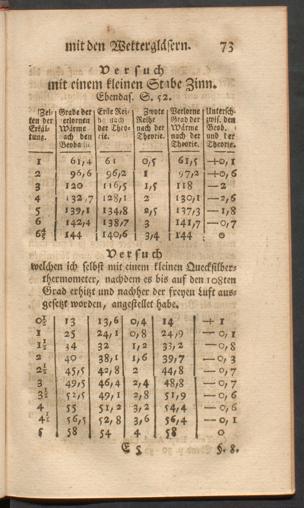 mit den Wettergläsern. 73
Versuch
mit einem kleinen Stabe Zinn.
Ebendas. S. 52.
Zei= Grade der Erste Rei= Zwote Verlorne Untersch.
ten der verlornen he nach Reihe Grad der zwis. den
Erkäl= Wärme der Theo= nach der Wärme Beob. und
tung. nach den rie. Theorie. nach der der
Beobacht. Theorie. Theorie.
1 61,4 61 0,5 61,5 +0,1
2 96,6 96,2 1 97,2 +0,6
3 120 116,5 1,5 118 —2
4 132,7 128,1 2 130,1 —2,6
5 139,1 134,8 2,5 137,3 —1,8
6 142,4 138,7 3 141,7 —0,7
144 140,6 3,4 144 0
Versuch
welchen ich selbst mit einem kleinen Quecksilber=
thermometer, nachdem es bis auf den 108ten
Grad erhitzt und nachher der freyen Luft aus=
gesetzt worden, angestellet habe.
0½ 13 13,6 0,4 14 +1
1 25 24,1 0,8 24,9 —0,1
1½ 34 32 1,2 33,2 —0,8
2 40 38,1 1,6 39,7 —0,3
2½ 45,5 42,8 2 44,8 —0,7
3 49,5 46,4 2,4 48,8 —0,7
3½ 52,5 49,1 2,8 51,9 —0,6
4 55 51,2 3,2 54,4 —0,6
4½ 56,5 52,8 3,6 56,4 —0,1
5 58 54 4 58 0
E 5 §. 8.